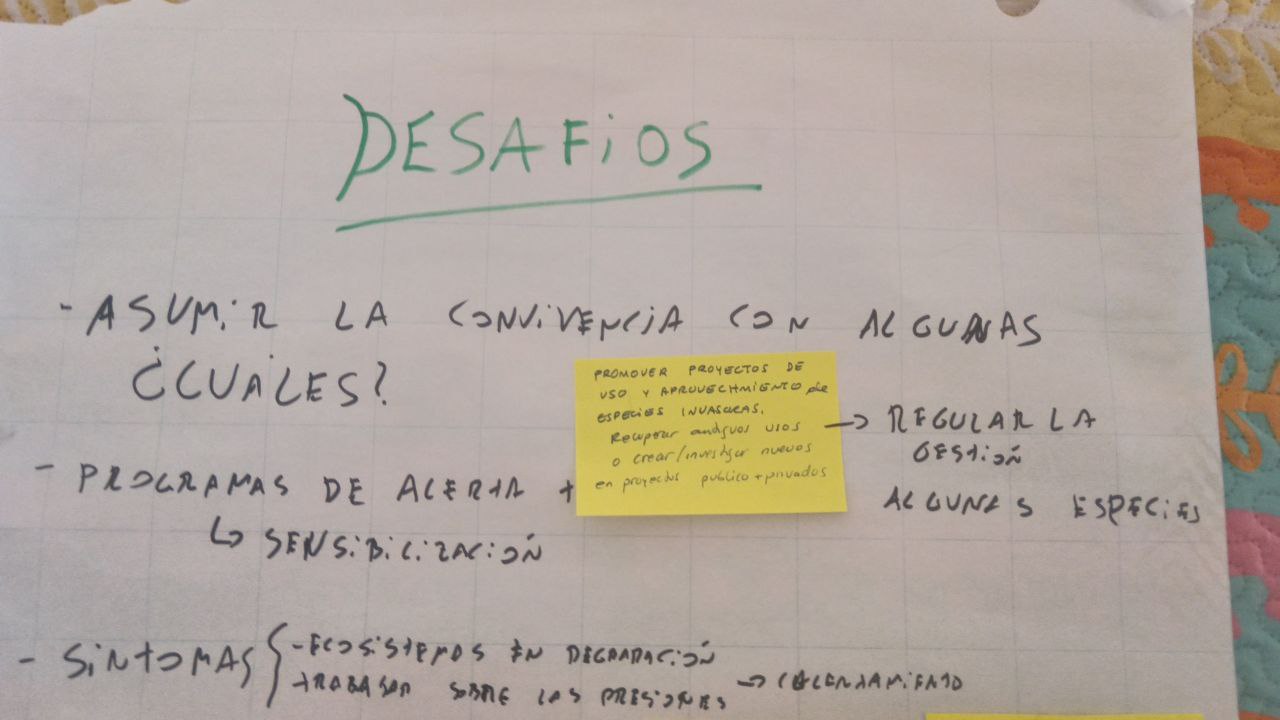 DESAFiOS
- ASUMiR LA CONVIVENCIA CON ALGUNAS
¿CUALES?
PROMOVER PROYECTOS DE
USO Y APROVECHMIENTO de
ESPECIES INVASORAS.
Recuperar antiguos usos
o crear/investigar nuevos
en proyectos publico + privados
→ REGULAR LA
GESTIÓN
ALGUNAS ESPECIES
- PROGRAMAS DE ALERTA +
↳ SENSIBILIZACIÓN
- SíNTOMAS { - ECOSISTEMAS EN DEGRADACIÓN
- TRABAJAR SOBRE LAS PRESIONES → CALENTAMIENTO